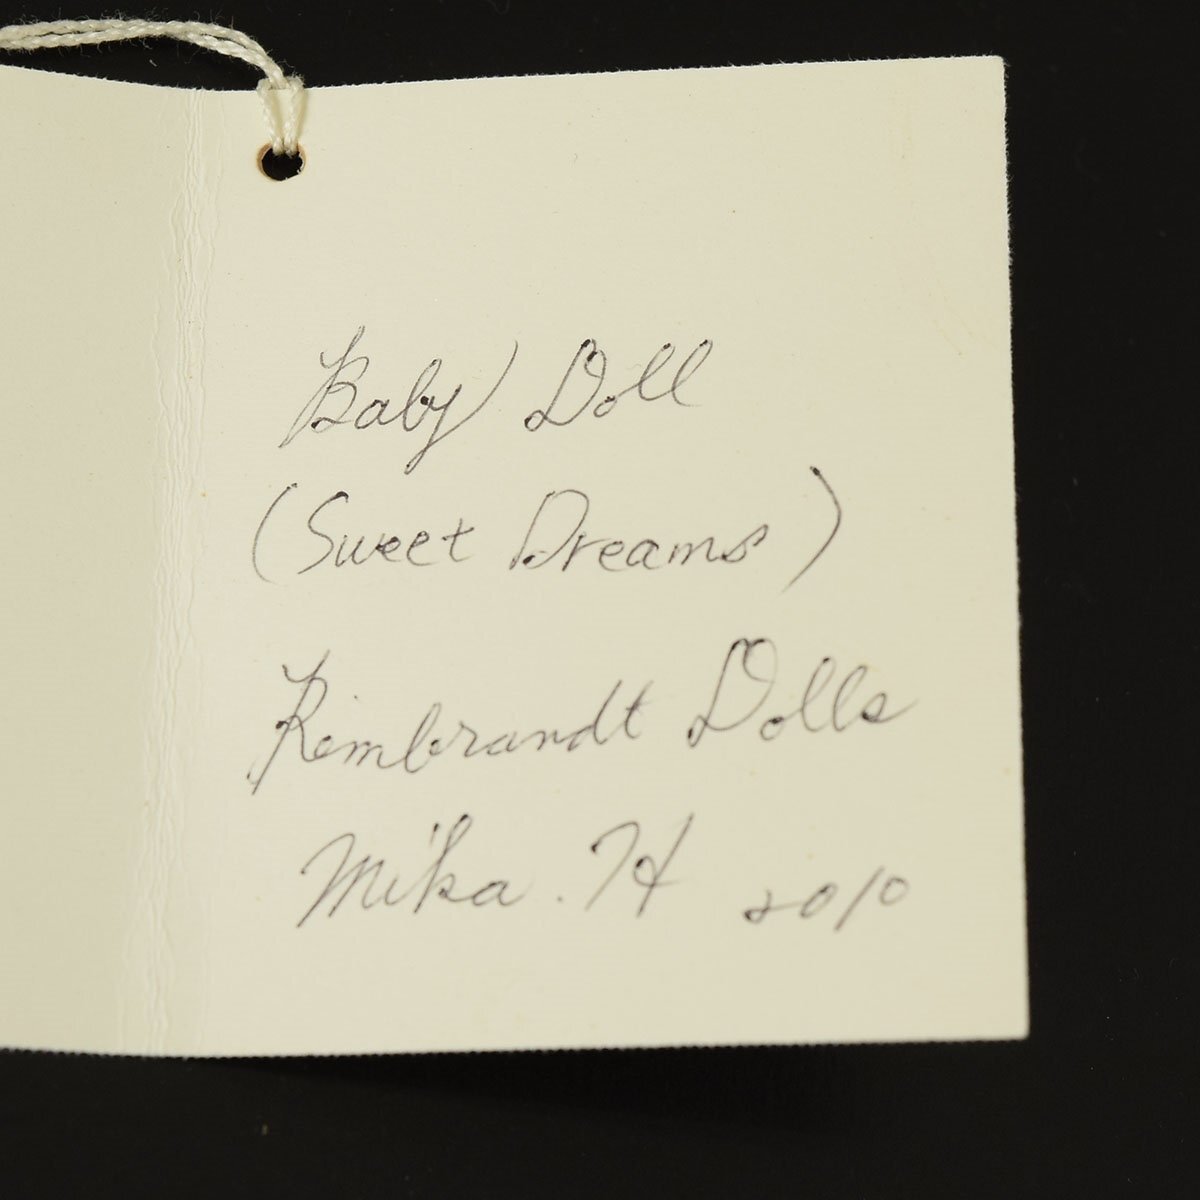 Baby Doll
(Sweet Dreams)
Rembrandt Dolls
Mika. H 2010